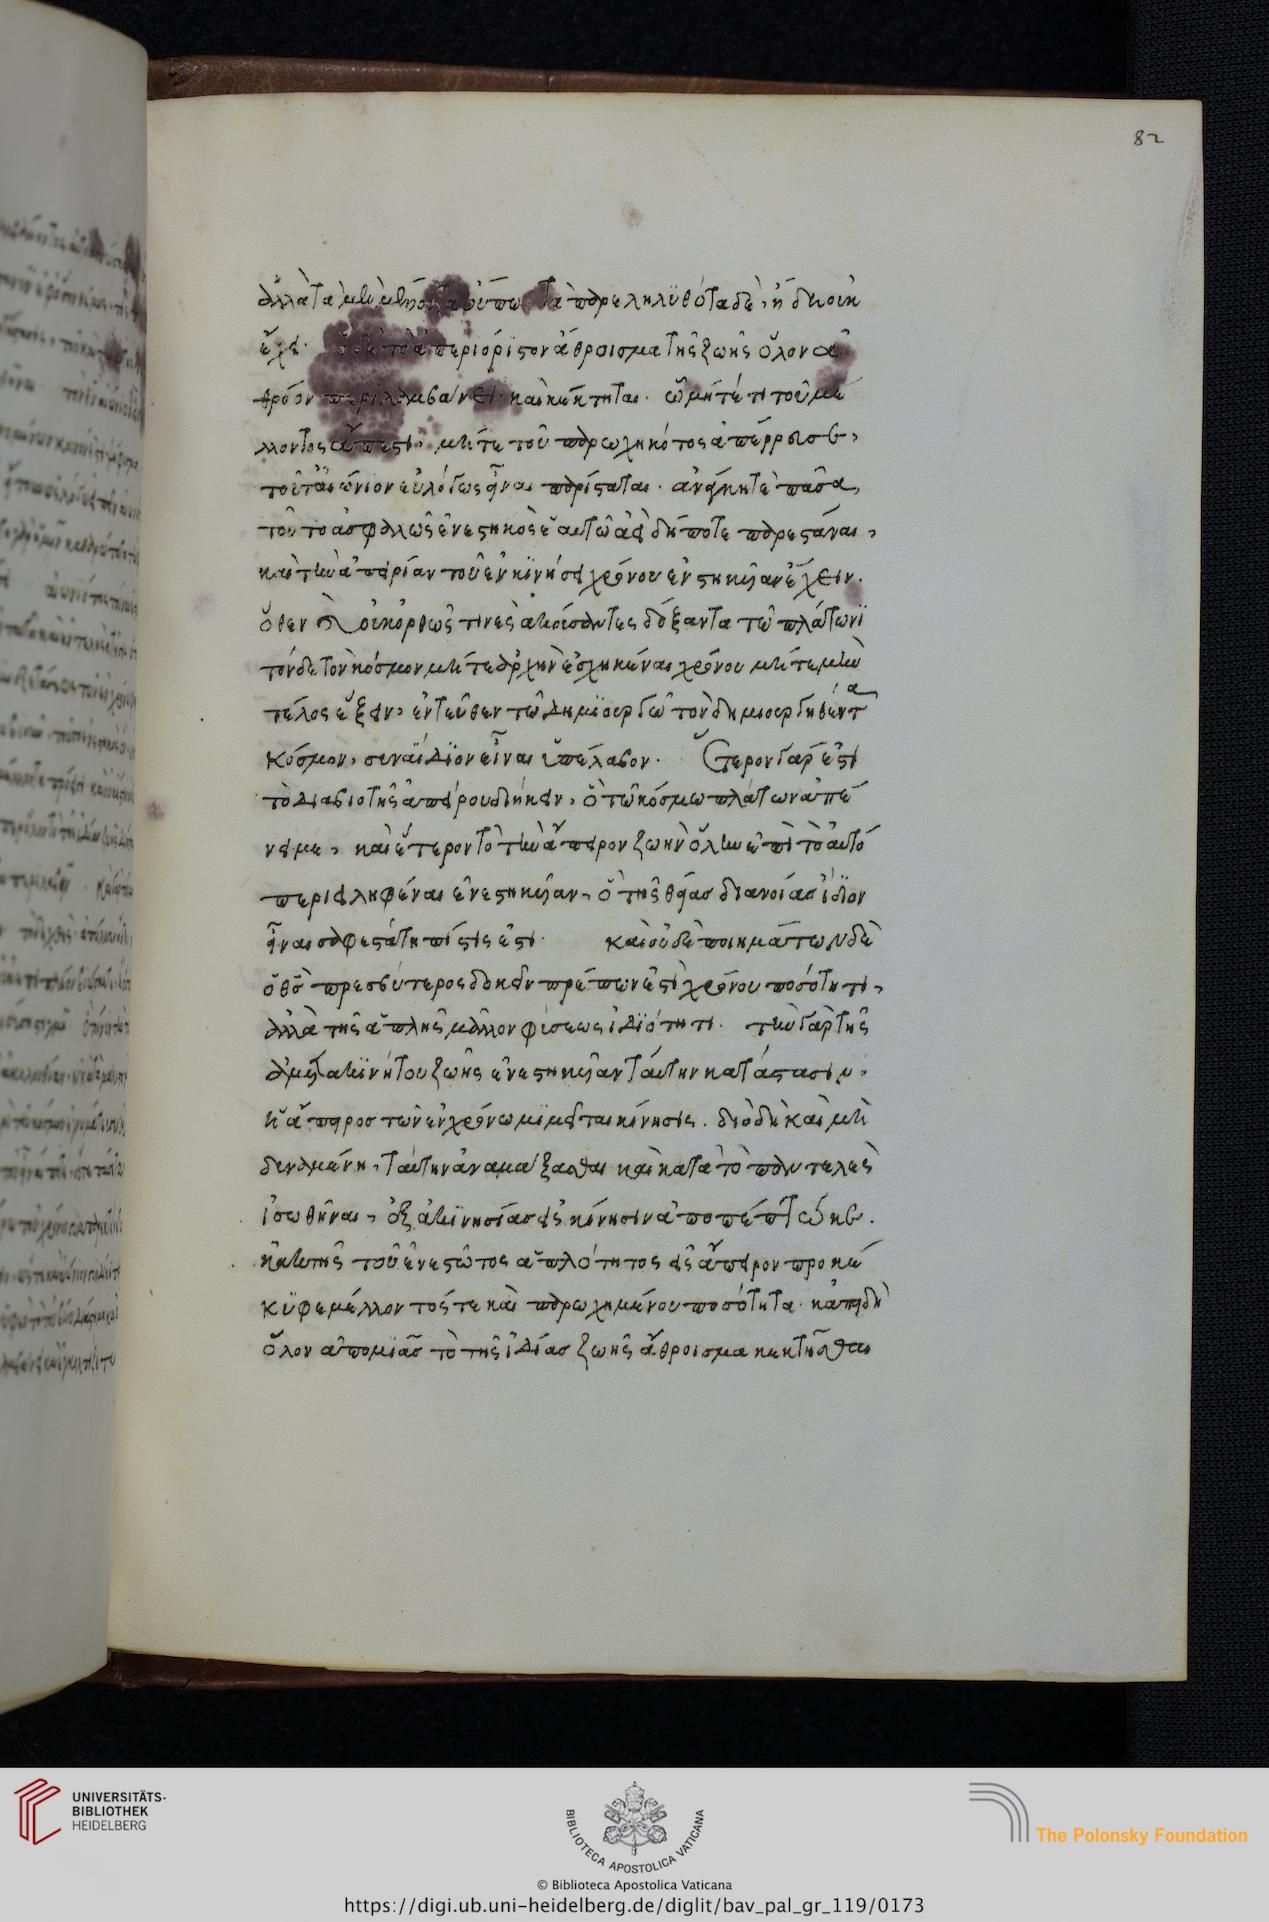 82
ἀλλὰ τὰ μὲν μήποτα οὔπω· τὰ παρεληλυθότα δὲ, ἤδη οὐκ
ἔχει· ὃ δὲ τὸ ἀπεριόριστον ἄθροισμα τῆς ζωῆς ὅλον ἀ
θρόον περιλαμβάνει· καὶ κέκτηται· ὧ μήτε τι τοῦ μέ
λλοντος ἄπεστι, μήτε τοῦ παρωχηκότος ἀπέρρευσεν,
τοῦτ' αἰώνιον εὐλόγως εἶναι παρίσταται· ἀνάγκη τὲ πᾶσα,
τοῦτο ἀσφαλῶς ἐνεστηκὸς ἑαυτῶ ἀεὶ δήποτε παρεστάναι,
καὶ τὴν ἀπειρίαν τοῦ ἐν κϊνήσει χρόνου ἐνστηκυῖαν ἔχειν.
ὅθεν οὐκ ὀρθῶς τινὲς ἀκούσαντες δόξαντα τῶ πλάτωνϊ
τόνδε τὸν κόσμον μήτε ἀρχὴν ἐσχηκέναι χρόνου μήτε μὴν
τέλος ἕξειν, ἐντεῦθεν τῶ δημϊουργῶ τὸν δημιουργηθέντα
κόσμον, συναΐδϊον εἶναι ὑπέλαβον. ἕτερον γάρ ἐστι
τὸ διὰ βιοτῆς ἀπείρου διήκειν, ὃ τῶ κόσμω πλάτων ἀπέ
νειμε, καὶ ἕτερον τὸ τὴν ἄπειρον ζωὴν ὅλην ἐπὶ τὸ αὐτό
περιειληφέναι ἐνεστηκυῖαν, ὃ τῆς θείας διανοίας ἴδϊον
εἶναι σαφεστάτη πίστις ἐστι· καὶ οὐδὲ ποιημάτων δὲ
ὁ θεὸς πρεσβύτερος δοκεῖν πρέπων ἐστὶ χρόνου ποσότητι,
ἀλλὰ τῆς ἁπλῆς μᾶλλον φύσεως ἰδϊότητι. τὴν γὰρ τῆς
ἀκϊνήτου ζωῆς ἐνεστηκυῖαν ταύτην κατάστασιν,
ἡ ἄπειρος τῶν ἐν χρόνω μϊμεῖται κίνησις. διὸ δὴ καὶ μὴ
δυναμένη, ταύτην ἀναμάξασθαι καὶ κατὰ τὸ παντελὲς
ἰσωθῆναι, ἐξ ἀκϊνησίας εἰς κίνησιν ἀποπέπτωκεν.
κἀκ τῆς τοῦ ἐνεστῶτος ἁπλότητος εἰς ἄπειρον προκέ
κϋφε μέλλοντός τε καὶ παρωχημένου ποσότητα· κἀπειδὴ
ὅλον ἀπομιᾶς τὸ τῆς ἰδίας ζωῆς ἄθροισμα κεκτῆσθαι
UNIVERSITÄTS-
BIBLIOTHEK
HEIDELBERG
BIBLIOTECA APOSTOLICA VATICANA
The Polonsky Foundation
© Biblioteca Apostolica Vaticana
https://digi.ub.uni-heidelberg.de/diglit/bav_pal_gr_119/0173